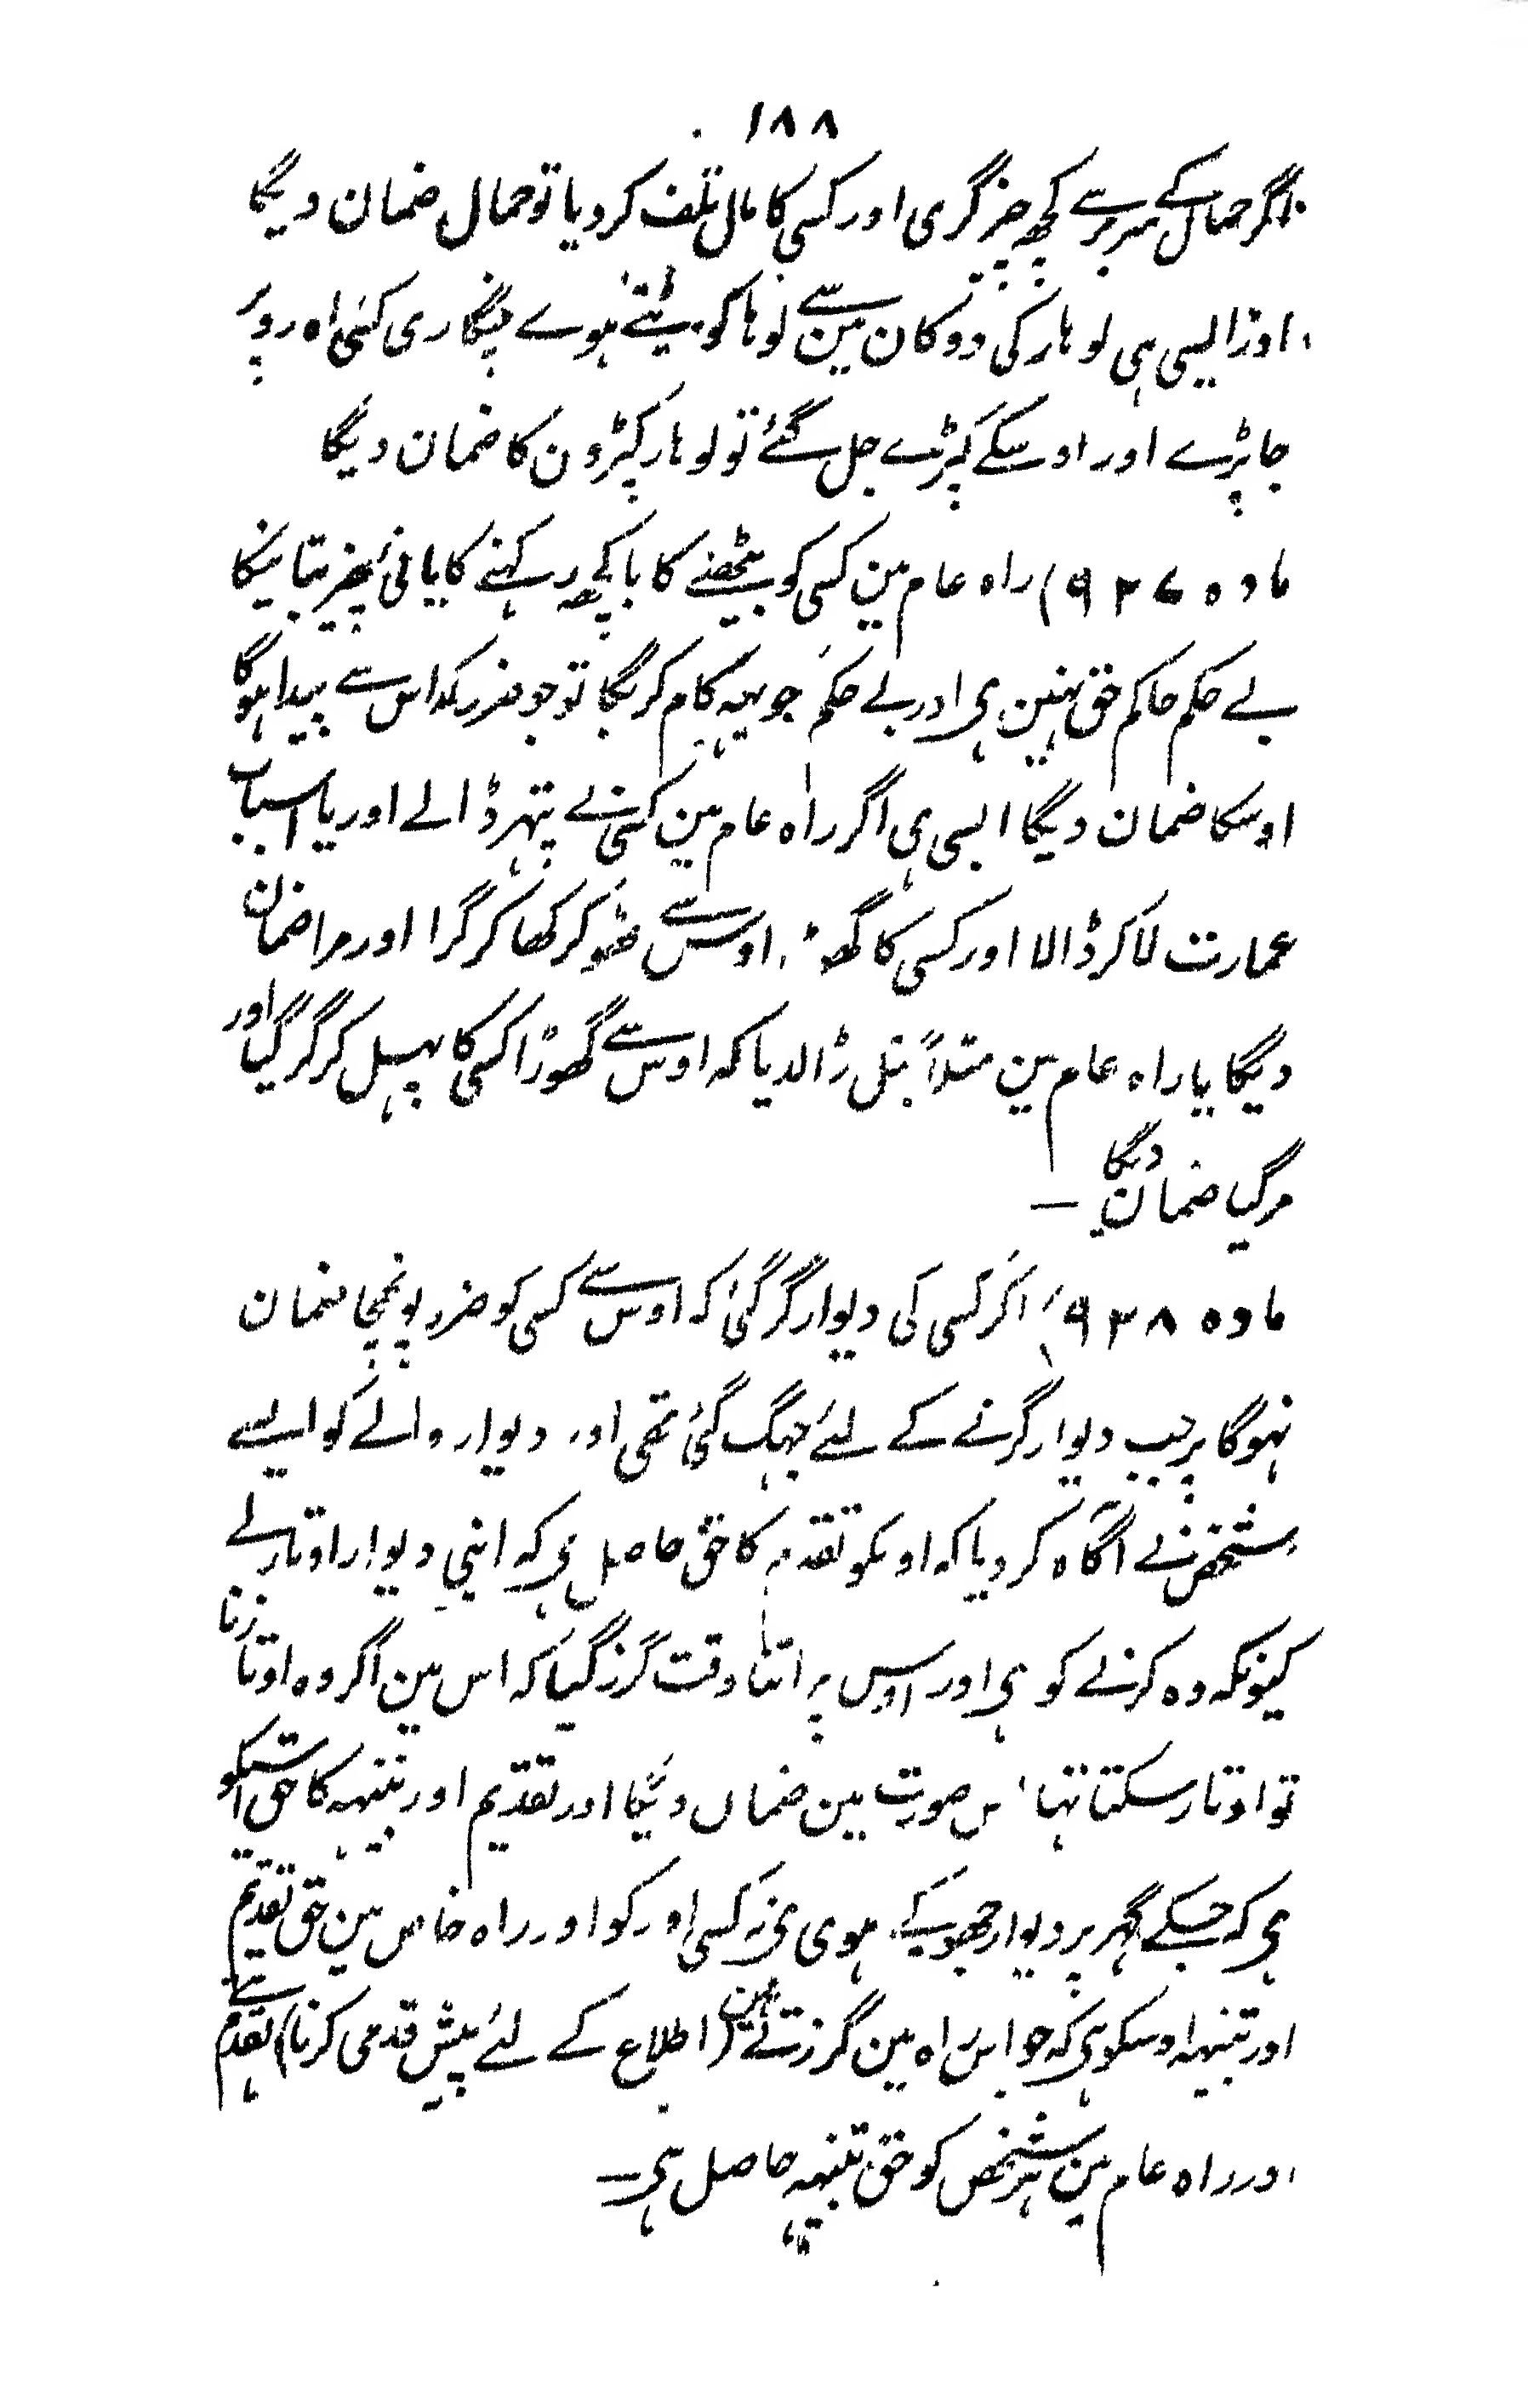 ۱۸۸
اگر حمال کے سر پر سے کچھ چیز گری اور کسی کا مال تلف کر دیا تو حمال ضمان دیگا
اور ایسی ہی لوہار کی دوکان مین سے لوہا کو پیٹتے ہوے چنگاری کسی راہ رو پر
جا پڑے اور اوسکے کپڑے جل گئے تو لوہار کپڑون کا ضمان دیگا
مادہ ۹۲۷) راہ عام مین کسی کو بیٹھنے کا یا کچھ رکہنے کا یا نئی چیز بنانیکا
بے حکم حاکم حق نہین ہی اور بے حکم جو یہہ کام کریگا تو جو ضرر کہ اس سے پیدا ہوگا
اوسکا ضمان دیگا ایسی ہی اگر راہ عام مین کسی نے پتہر ڈالے اور یا اسباب
عمارت لا کر ڈالا اور کسی کا گھوڑا اوس سے ٹھوکر کھا کر گرا اور مرا ضمان
دیگا یا راہ عام مین مثلاً تیل ڈالدیا کہ اوس سے گھوڑا کسی کا پہسل کر گر گیا اور
مر گیا ضمان دیگا —
مادہ ۹۲۸) اگر کسی کی دیوار گر گئی کہ اوس سے کسی کو ضرر پونہچا ضمان
نہوگا پر جب دیوار گرنے کے لئے جہک گئی تھی اور دیوار والے کو ایسے
شخص نے آگاہ کر دیا کہ اوسکو تقدم کا حق حاصل ہی کہ اپنی دیوار اوتار لے
کیونکہ وہ گرنے کو ہی اور اوس پر اتنا وقت گزر گیا کہ اس مین اگر وہ اوتارنا
تو اوتار سکتا تہا اس صورت مین ضمان دیگا اور تقدیم اور تنبیہہ کا حق اسیکو
ہی کہ جسکے گہر پر دیوار جھوکی ہوی ہی نہ کسی اور کو اور راہ خاص مین حق تقدیم
اور تنبیہہ اوسکو ہی کہ جو اس راہ مین گزرتے ہین (اطلاع کے لئے پیش قدمی کرنا) تقدم ہے
اور راہ عام مین ہر شخص کو حق تنبیہہ حاصل ہی —